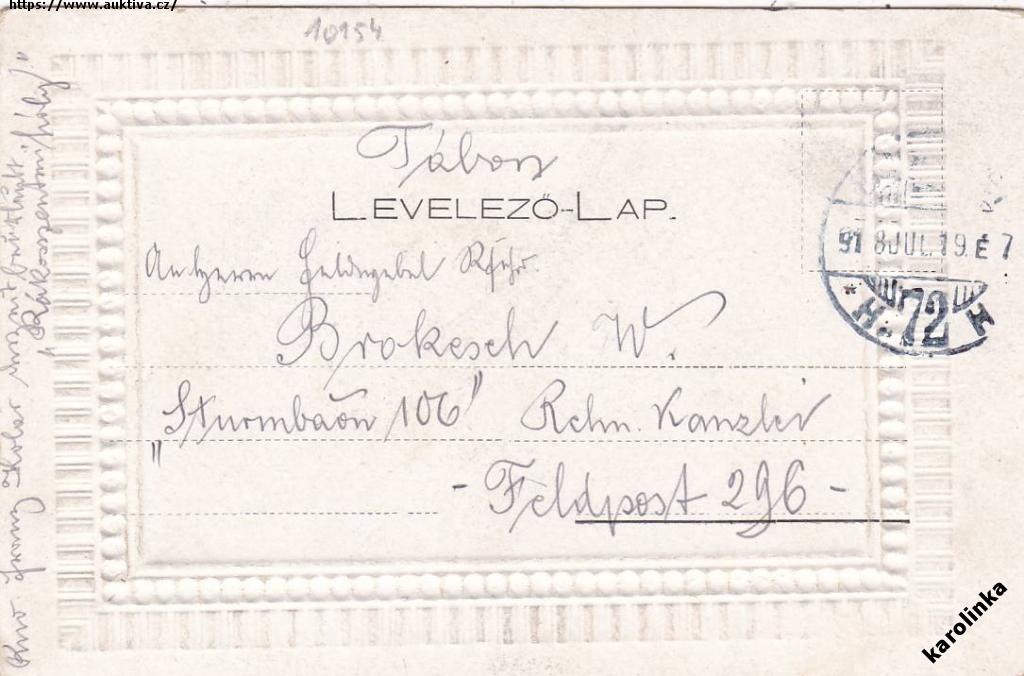 https://www.auktiva.cz/
10154
Tábori
LEVELEZŐ-LAP.
An Herrn Feldwebel
Brokesch W.
"Sturmbaon 106" Rchn. Kanzlei
- Feldpost 296 -
918 JUL. 19. É 7
* H. 72 H
Franz
"Rákosszentmihály"
karolinka